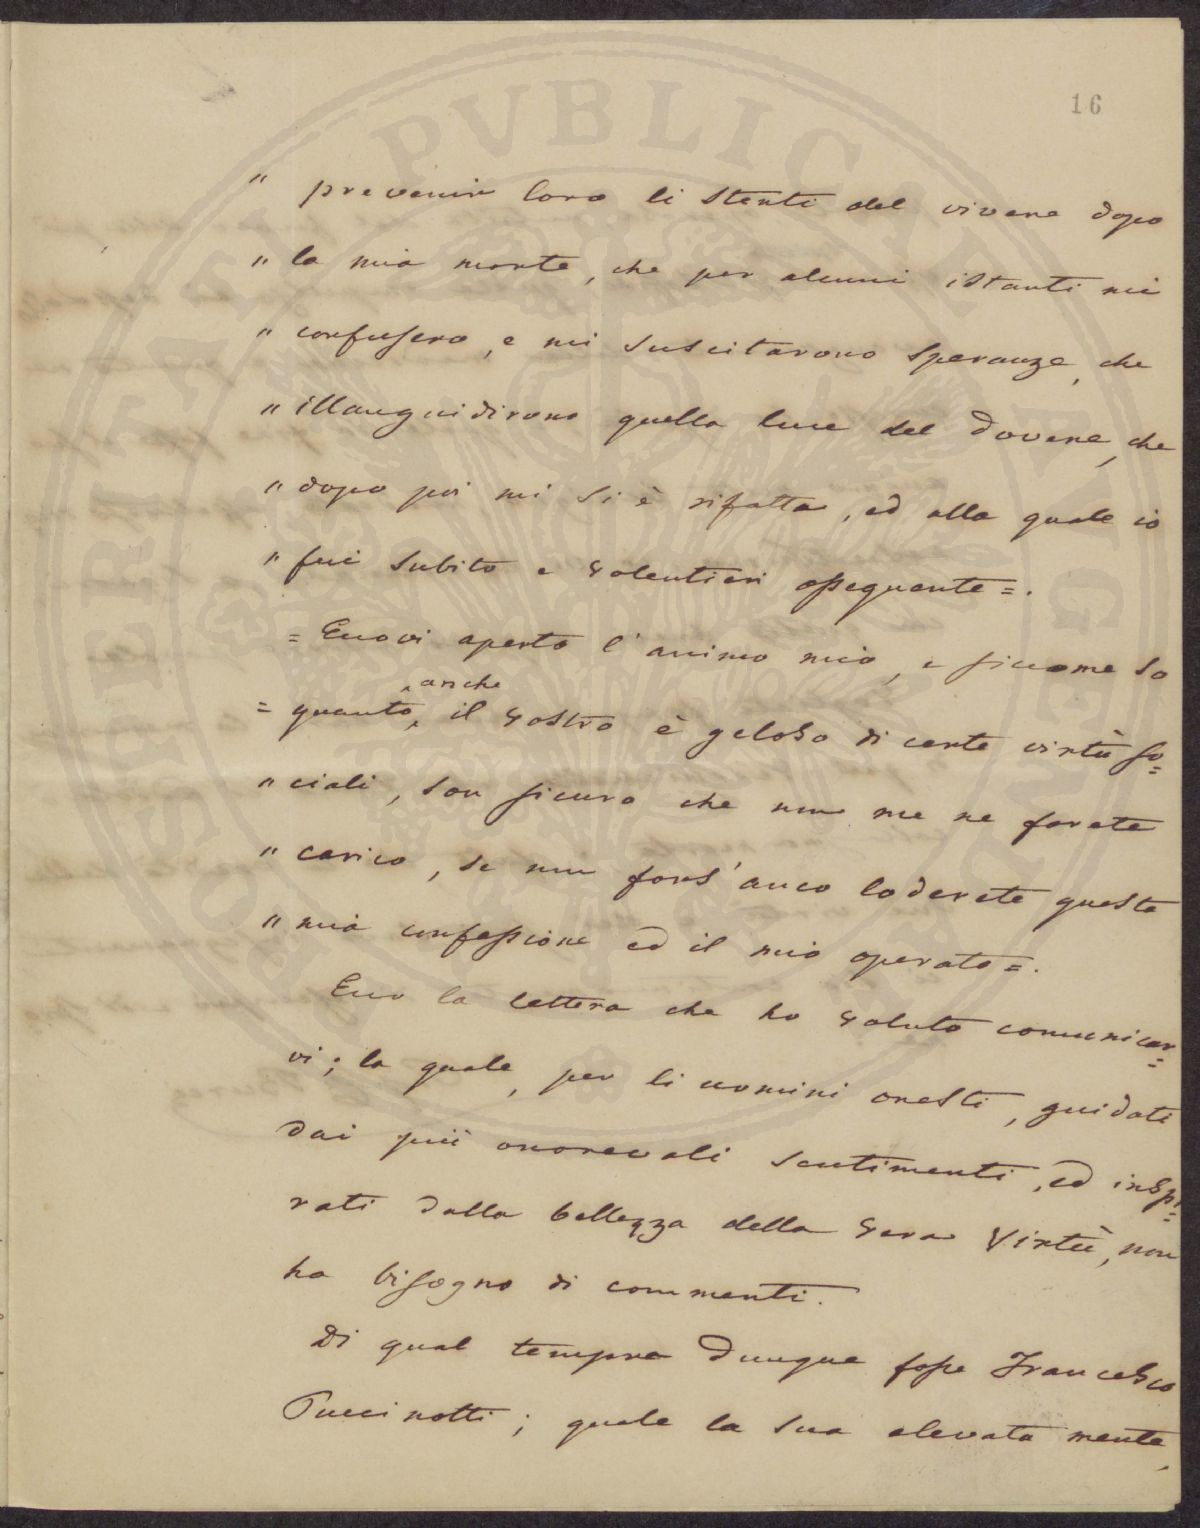 16
" prevenir loro li stenti del vivere dopo
" la mia morte, che per alcuni istanti mi
" confusero, e mi suscitarono speranze, che
" illanguidirono quella luce del dovere, che
" dopo poi mi si è rifatta, ed alla quale io
" fui subito e volentieri ossequente =.
= Eccovi aperto l'animo mio, e siccome so
anche
= quanto, il vostro è geloso di certe virtù so=
" ciali, son sicuro che non me ne farete
" carico, se non fors'anco loderete questa
" mia confessione ed il mio operato =.
Ecco la lettera che ho voluto comunicar=
vi; la quale, per li uomini onesti, guidati
dai più onorevoli sentimenti, ed inspi=
rati dalla bellezza della vera Virtù, non
ha bisogno di commenti.
Di qual tempra dunque fosse Francesco
Puccinotti; quale la sua elevata mente,
PVBLICAE